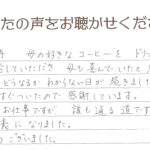 たの声をお聴かせくださ
母の好きなコーヒーを ドリッ
していただき 母も喜んでいたと
どうなるか わからない日が続きまし
すぐついたので 感謝しています。
お仕事ですが 誰も通る道です
素になりました。
ございました。